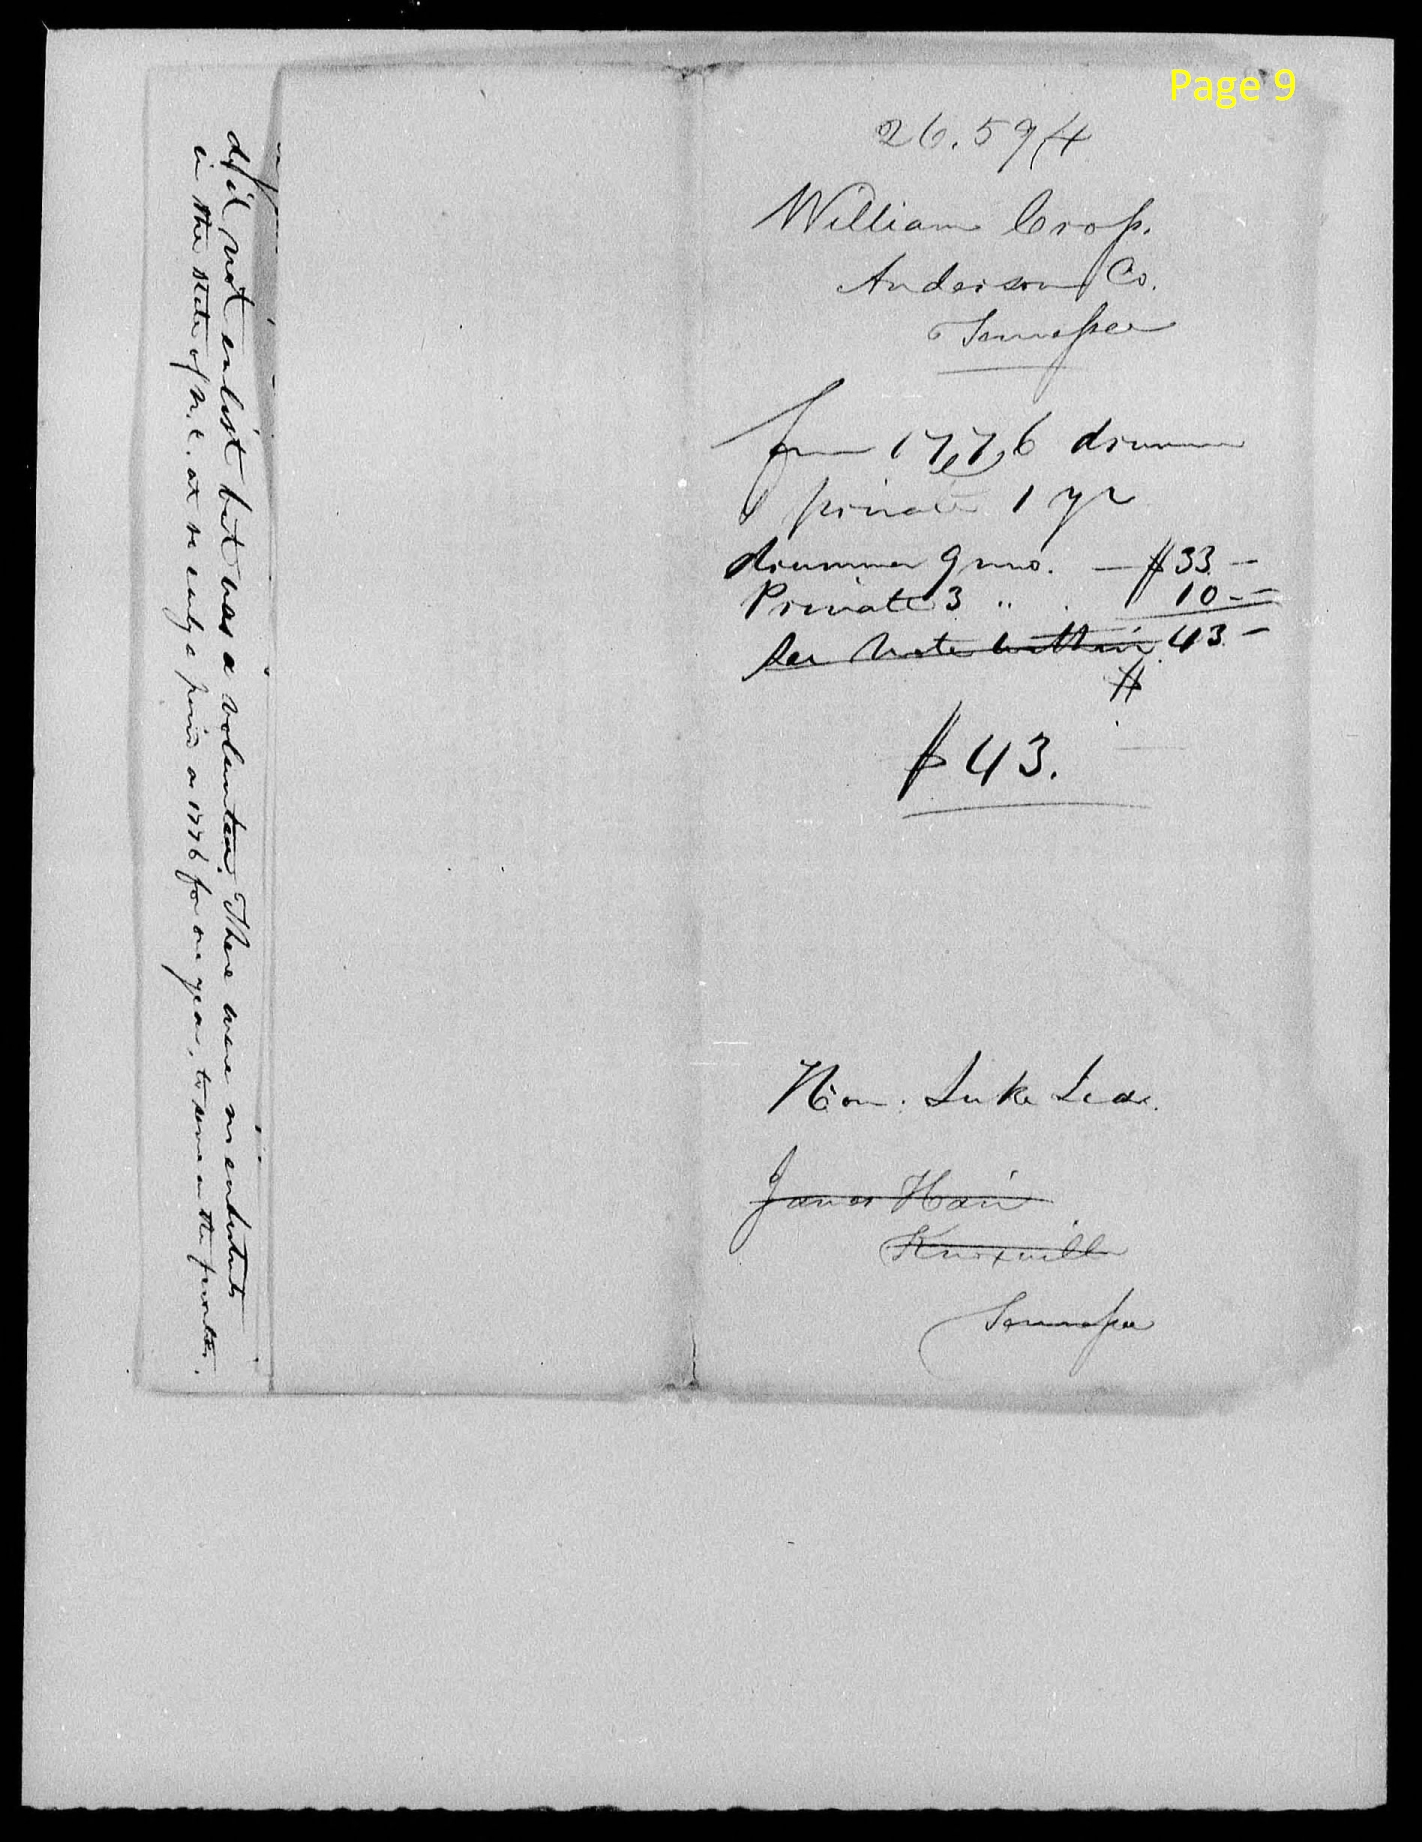 Page 9
26.594
William Cross.
Anderson Co.
Tennessee
from 1776 drummer
& private 1 yr
drummer 9 mo. — $33 —
Private 3 " . 10 —
See note within 43 —
$
$43.
Hon. Luke Lea.
James Hair
Knoxville
Tennessee
did not enlist but was a volunteer. There were no enlistments
in the State of N.C. at so early a period as 1776 for one year, to serve on the frontier.